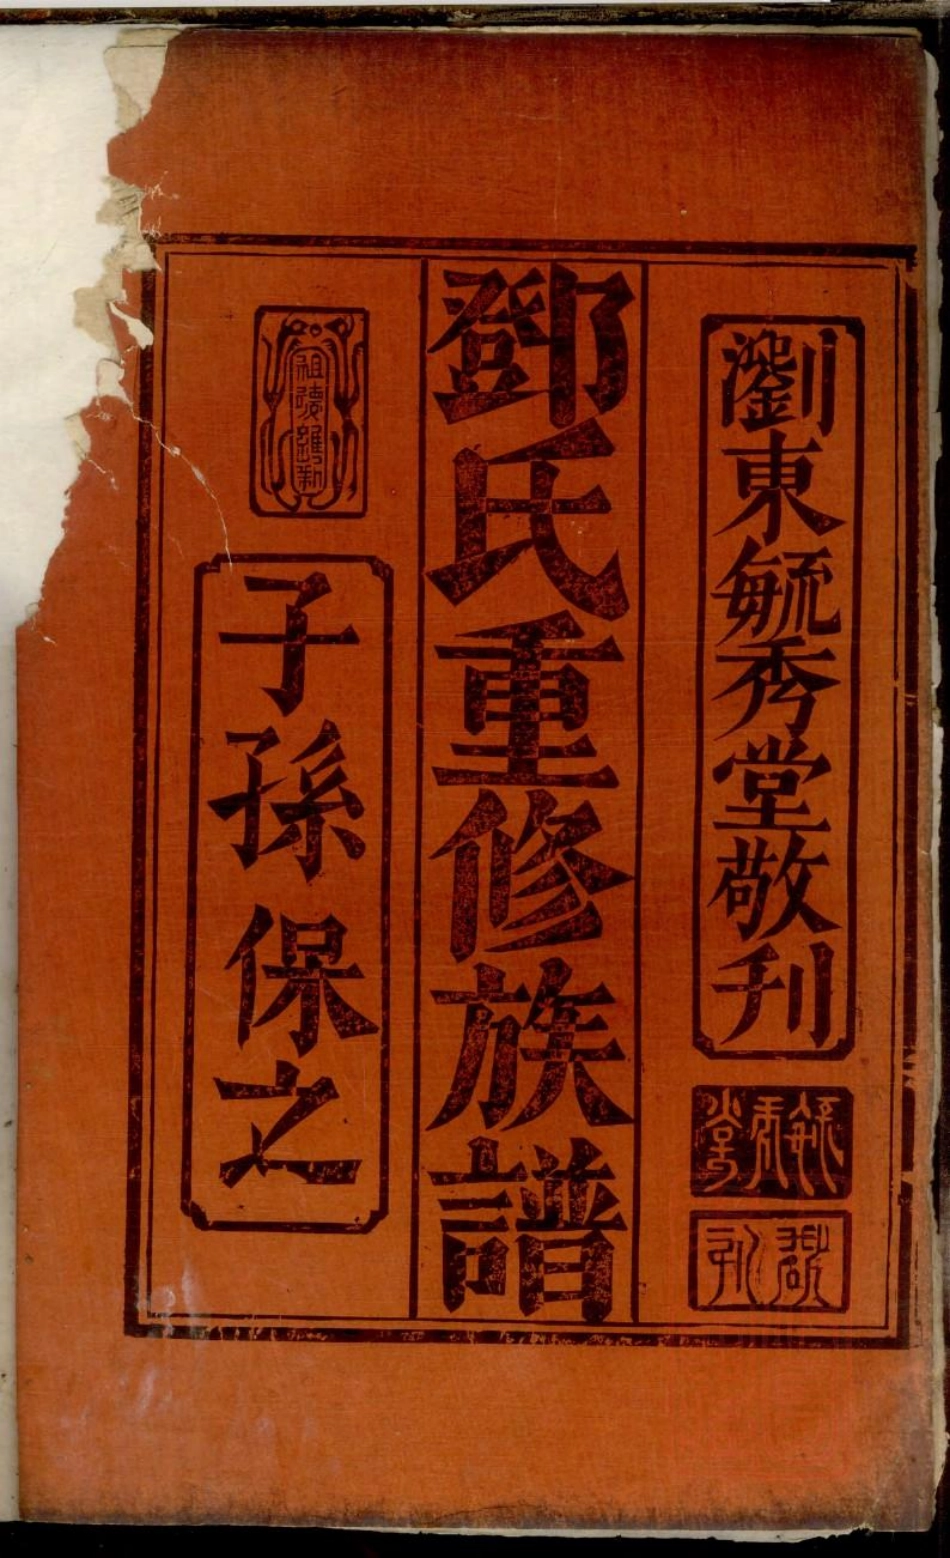 瀏東毓秀堂敬刊
毓秀堂
敬刊
鄧氏重修族譜
祖德維新
子孫保之